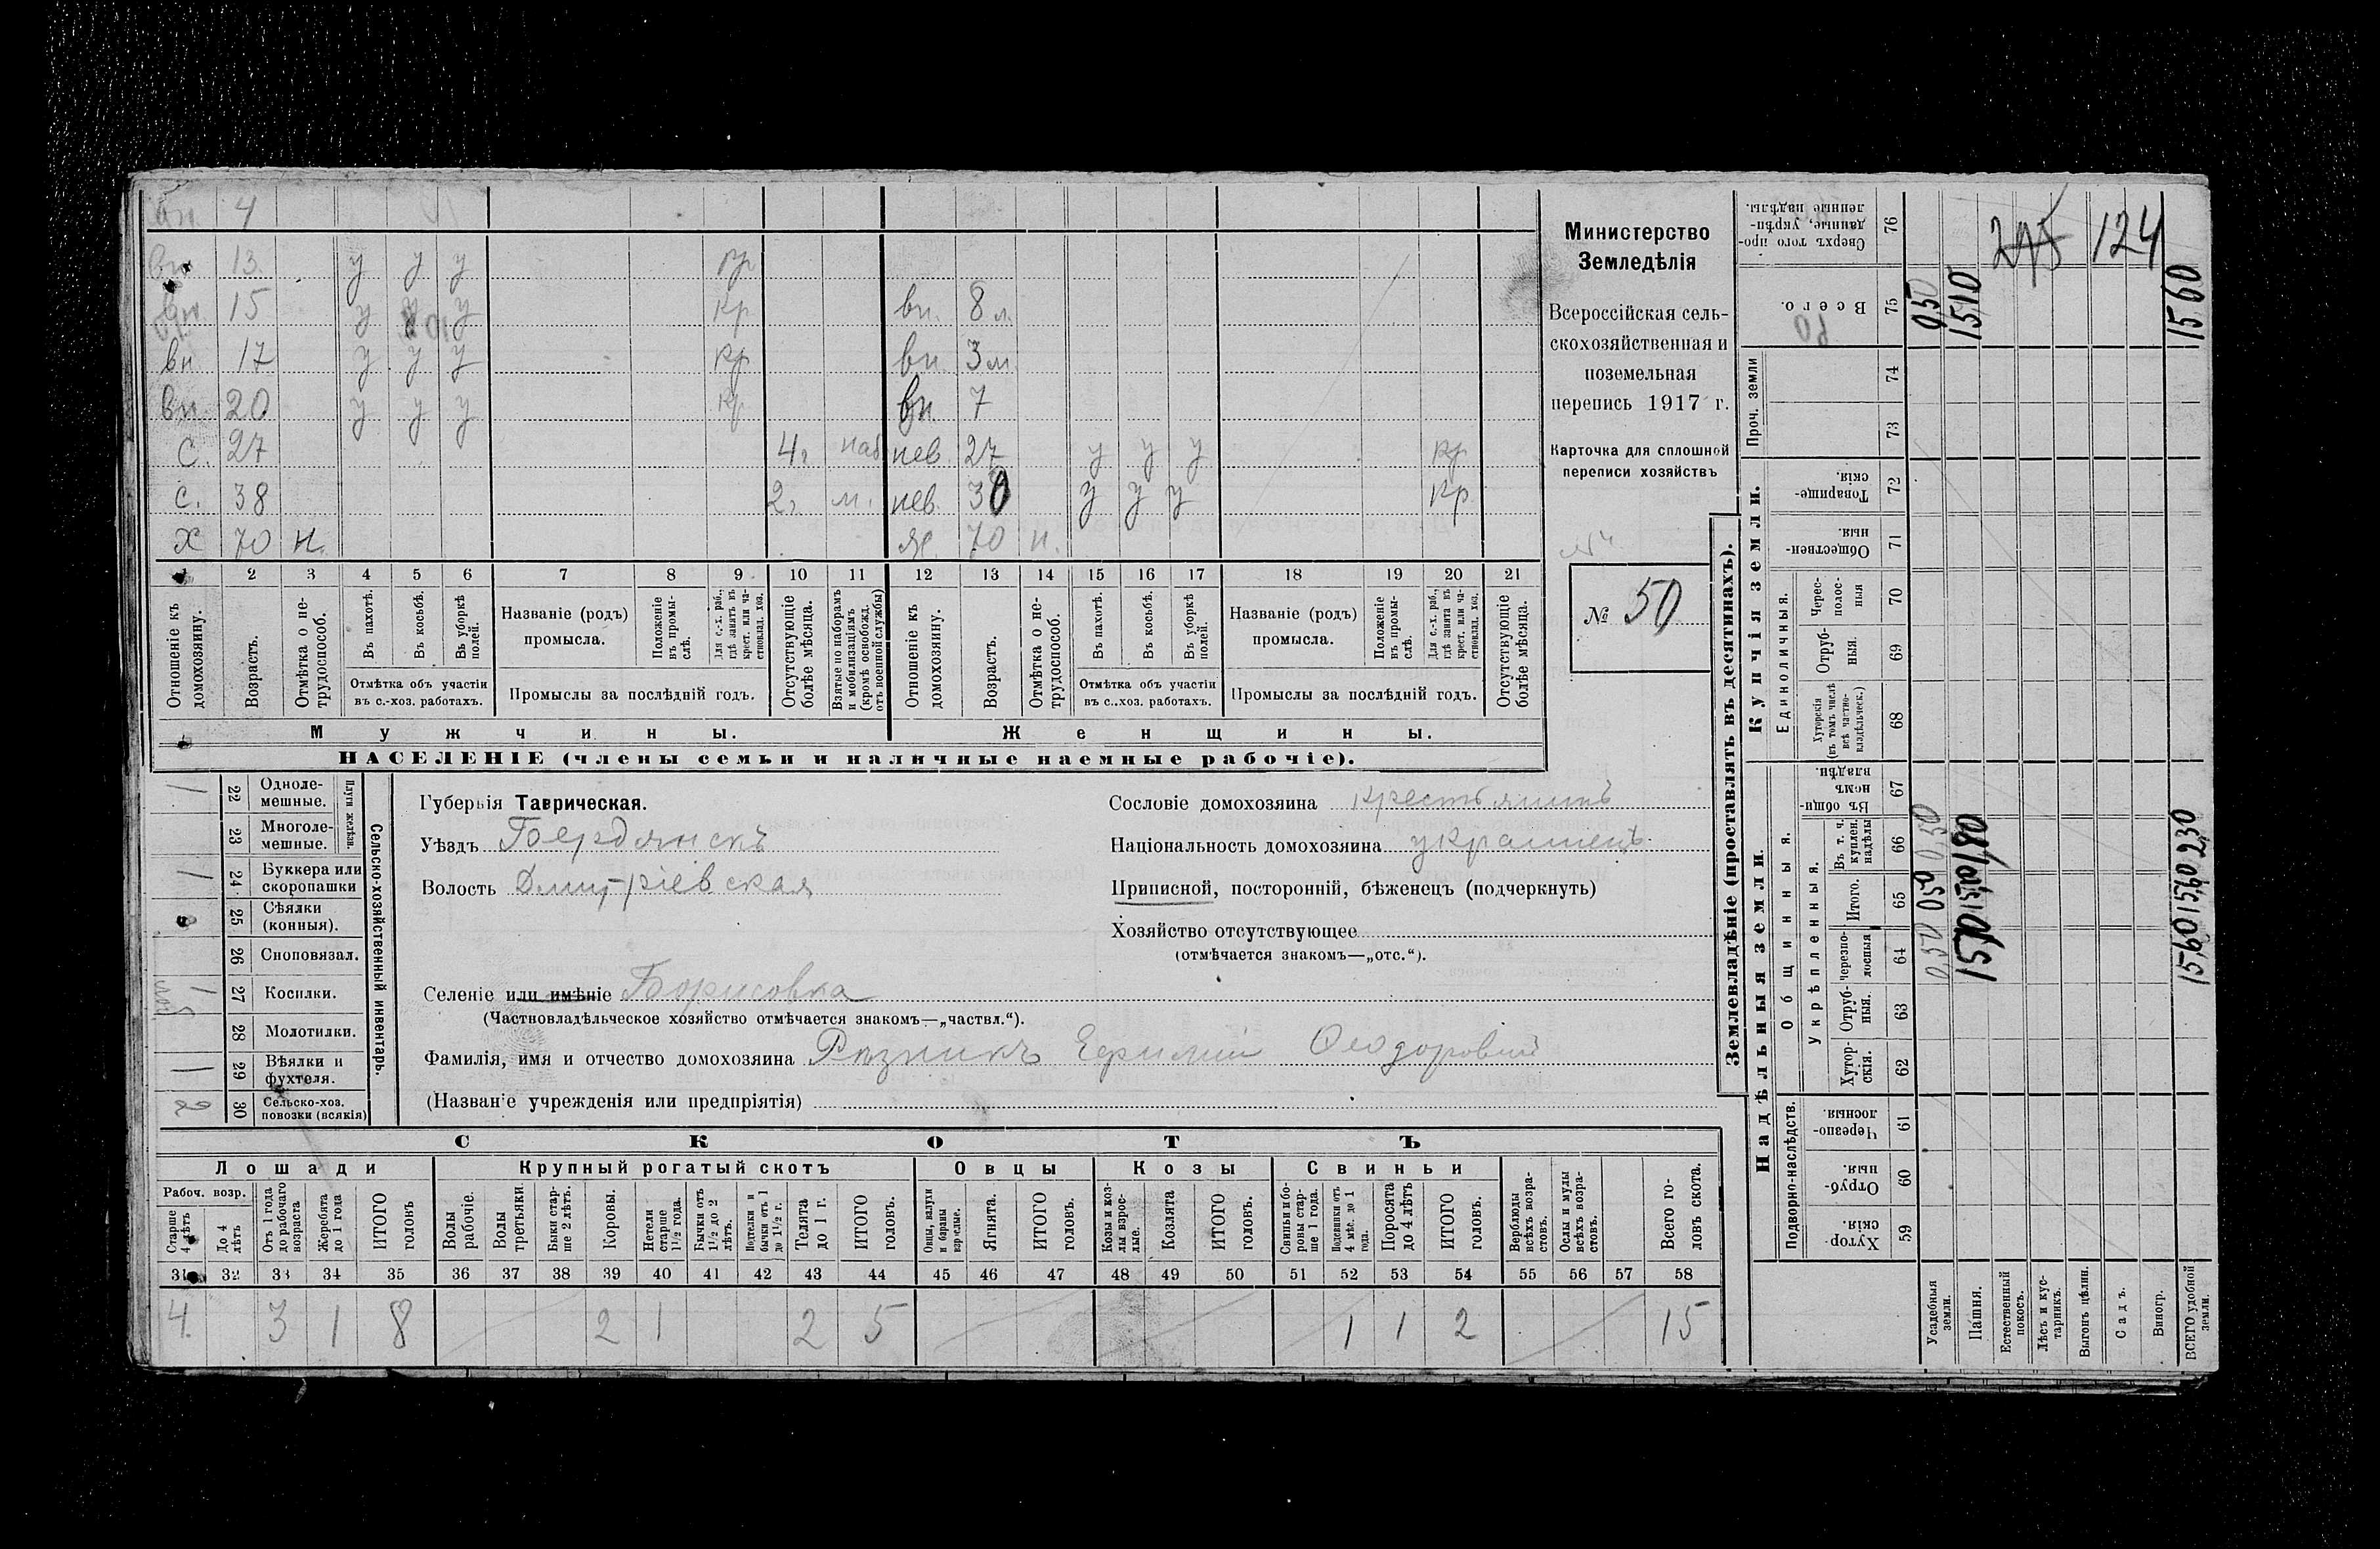 вн. 4
вн. 13 у у у кр
вн. 15 у у у кр вн. 8 л.
вн. 17 у у у кр вн. 3 м.
вн. 20 у у у кр вн. 7
с. 27 4 г. наб нев. 27 у у у кр
с. 38 2 г. м. нев. 30 у у у кр
х 70 н. ж. 70 н.
1 2 3 4 5 6 7 8 9 10 11 12 13 14 15 16 17 18 19 20 21
Отношеніе къ домохозяину.
Возрастъ.
Отмѣтка о не-трудоспособ.
Въ пахотѣ.
Въ косьбѣ.
Въ уборкѣ полей.
Отмѣтка объ участіи
въ с.-хоз. работахъ.
Названіе (родъ)
промысла.
Положеніе въ промы-слѣ.
Для с.-х. раб., гдѣ занятъ въ крест. или ча-стновлад. хоз.
Промыслы за послѣдній годъ.
Отсутствующіе болѣе мѣсяца.
Взятые по наборамъ и мобилизаціямъ (кромѣ освобожд. отъ военной службы)
Отношеніе къ домохозяину.
Возрастъ.
Отмѣтка о не-трудоспособ.
Въ пахотѣ.
Въ косьбѣ.
Въ уборкѣ полей.
Отмѣтка объ участіи
въ с..хоз. работахъ.
Названіе (родъ)
промысла.
Положеніе въ промы-слѣ.
Для с.-х. раб., гдѣ занята въ крест. или ча-стновлад. хоз.
Промыслы за послѣдній годъ.
Отсутствующіе болѣе мѣсяца.
Мужчины. Женщины.
НАСЕЛЕНІЕ (члены семьи и наличные наемные рабочіе).
Министерство
Земледѣлія
Всероссійская сель-
скохозяйственная и
поземельная
перепись 1917 г.
Карточка для сплошной
переписи хозяйствъ
№ 50
Сельско-хозяйственный инвентарь.
Плуги желѣзн.
1 22 Одноле-мешные.
23 Многоле-мешные.
1 24 Буккера или скоропашки
25 Сѣялки (конныя).
26 Сноповязал.
1 27 Косилки.
28 Молотилки.
1 29 Вѣялки и фухтеля.
2 30 Сельско-хоз. повозки (всякія)
Губернія Таврическая.
Уѣздъ Бердянскъ
Волость Дмитріевская
Сословіе домохозяина крестьянинъ
Національность домохозяина украинецъ
Приписной, посторонній, бѣженецъ (подчеркнуть)
Хозяйство отсутствующее
(отмѣчается знакомъ—„отс.“).
Селеніе или имѣніе Борисовка
(Частновладѣльческое хозяйство отмѣчается знакомъ—„частвл.“).
Фамилія, имя и отчество домохозяина Рѣзникъ Ефимій Ѳеодоровичъ
(Названіе учрежденія или предпріятія)
СКОТЪ
Лошади Крупный рогатый скотъ Овцы Козы Свиньи
Рабоч. возр.
Старше 4 лѣтъ
До 4 лѣтъ
Отъ 1 года до рабочаго возраста
Жеребята до 1 года
ИТОГО головъ
Волы рабочіе.
Волы третьяки.
Быки стар-ше 2 лѣтъ.
Коровы.
Нетели старше 1½ года.
Бычки отъ 1½ до 2 лѣтъ.
Подтелки и бычки отъ 1 до 1½ г.
Телята до 1 г.
ИТОГО головъ.
Овцы, валухи и бараны взрослые.
Ягнята.
ИТОГО головъ.
Козы и коз-лы взрос-лые.
Козлята
ИТОГО головъ.
Свиньи и бо-ровы стар-ше 1 года.
Подсвинки отъ 4 мѣс. до 1 года.
Поросята до 4 лѣтъ
ИТОГО головъ.
Верблюды всѣхъ возра-стовъ.
Ослы и мулы всѣхъ возра-стовъ.
Всего го-ловъ скота.
31 32 33 34 35 36 37 38 39 40 41 42 43 44 45 46 47 48 49 50 51 52 53 54 55 56 57 58
4. 3 1 8 2 1 2 5 1 1 2 15
Землевладѣніе (проставлять въ десятинахъ).
Надѣльныя земли.
Купчія земли.
Подворно-наслѣдств.
Общинныя.
Укрѣпленныя.
Единоличныя.
Проч. земли
Хутор-скія. 59
Отруб-ныя. 60
Черезпо-лосныя 61
Хутор-скія. 62
Отруб-ныя. 63
Черезпо-лосныя 64
Итого. 65
Въ т. ч. куплен. надѣлы 66
Въ общи-номъ владѣн. 67
Хуторскія (въ томъ числѣ всѣ частно-владѣльческ.) 68
Отруб-ныя. 69
Черес-полос-ныя 70
Обществен-ныя. 71
Товарище-скія. 72
73
74
Всего. 75
Сверхъ того про-данные, укрѣп-ленные надѣлы. 76
Усадебныя земли. 0,50 050 0,50 050
Пашня. 1510 1510 180 1510
Естественный покосъ.
Лѣсъ и кус-тарникъ.
Выгонъ цѣлин.
Садъ.
Виногр.
ВСЕГО удобной земли. 1560 1560 230 1560
124